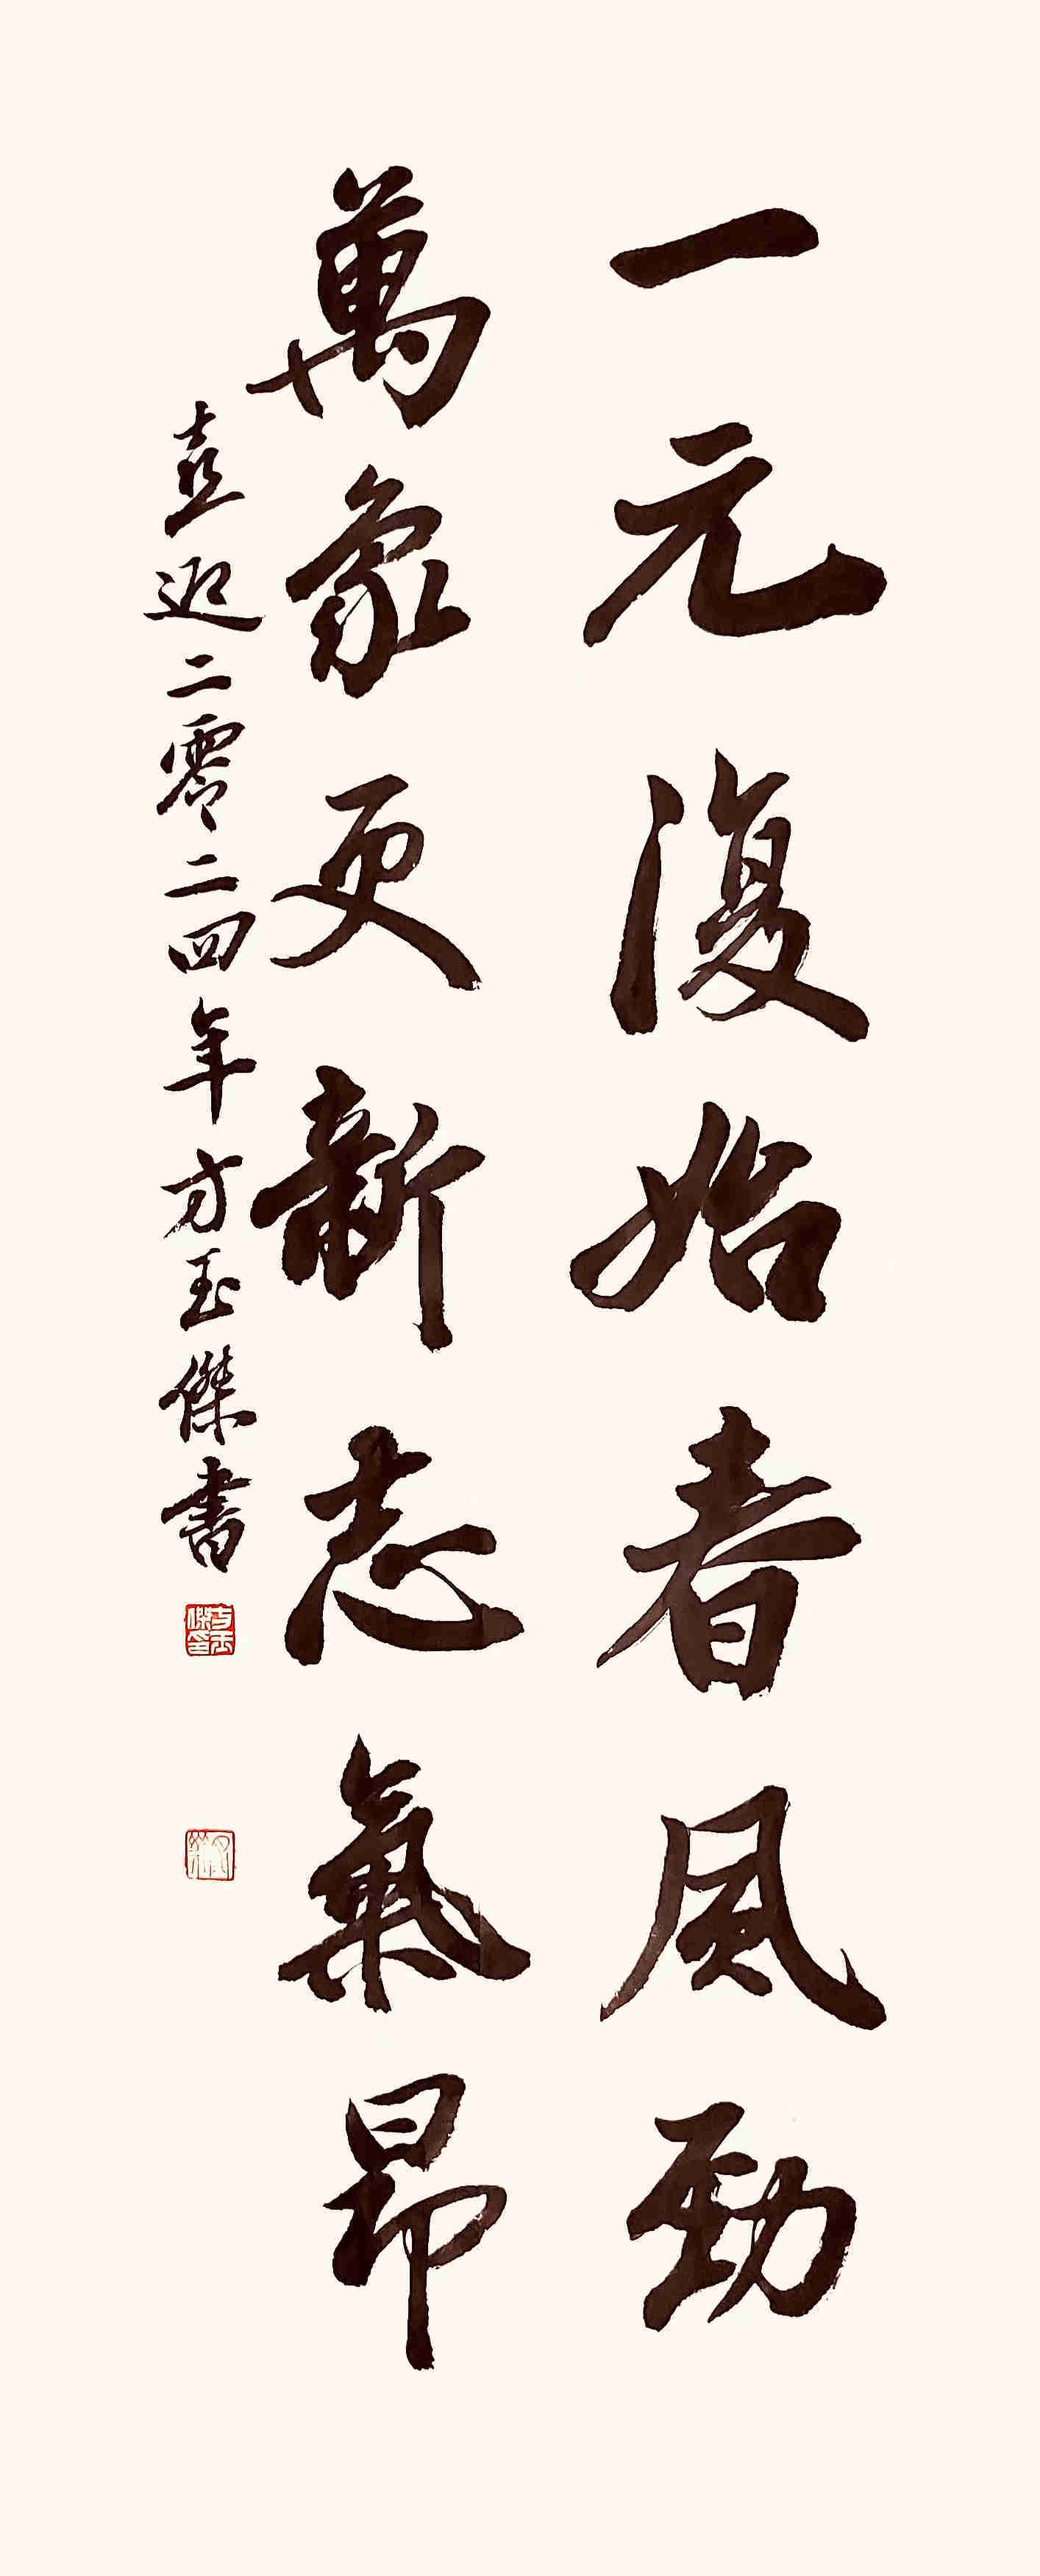 一元復始春風勁
萬象更新志氣昂
喜迎二零二四年方玉傑書
方玉傑印